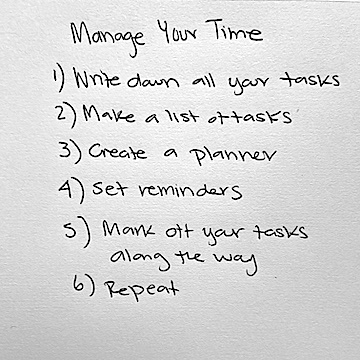 Manage Your Time
1) Write down all your tasks
2) Make a list of tasks
3) Create a planner
4) Set reminders
5) Mark off your tasks
along the way
6) Repeat